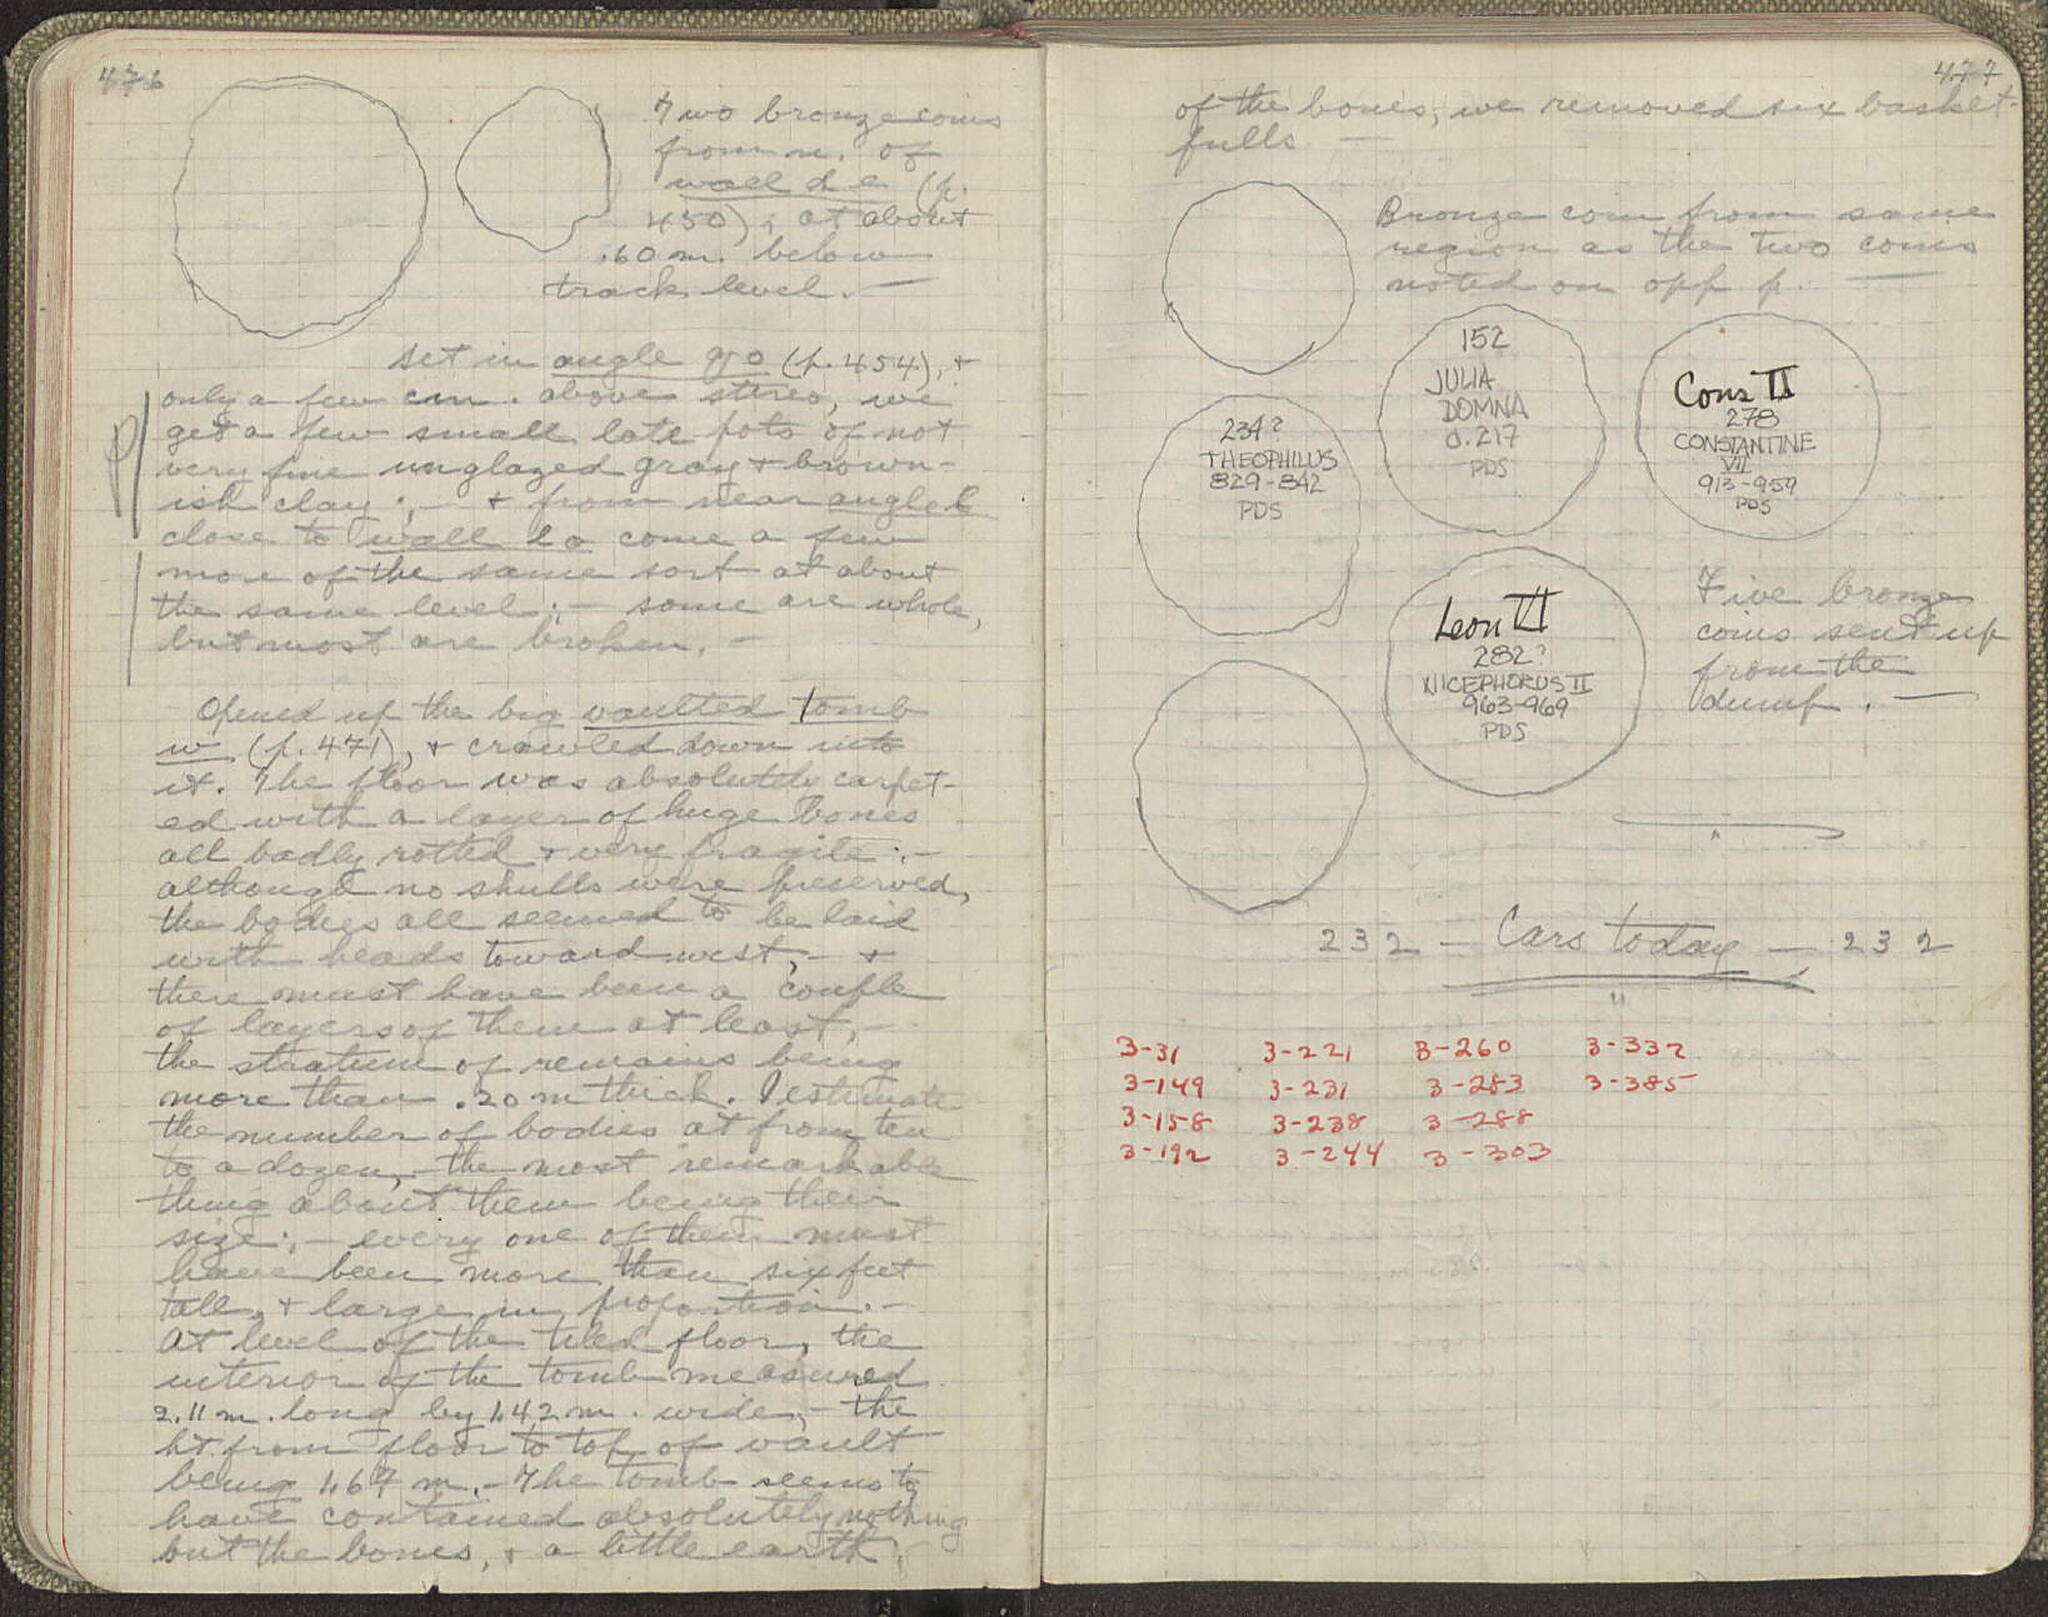 476
Two bronze coins
from n. of
wall d e (p.
450), at about
.60 m. below
track level. —
set in angle g o (p. 454), +
only a few cm. above stereo, we
get a few small late pots of not
very fine unglazed gray + brown-
ish clay; — + from near angle b
close to wall 2 a come a few
more of the same sort at about
the same level; — some are whole,
but most are broken. —
Opened up the big vaulted tomb
w (p. 471), + crawled down into
it. The floor was absolutely carpet-
ed with a layer of huge bones
all badly rotted + very fragile; —
although no skulls were preserved,
the bodies all seemed to be laid
with heads toward west, — +
there must have been a couple
of layers of them at least, —
the stratum of remains being
more than .20 m thick. I estimate
the number of bodies at from ten
to a dozen, — the most remarkable
thing about them being their
size; — every one of them must
have been more than six feet
tall, + large in proportion. —
At level of the tiled floor, the
interior of the tomb measured
2.11 m. long by 1.42 m. wide, — the
ht. from floor to top of vault
being 1.67 m. — The tomb seems to
have contained absolutely nothing
but the bones, + a little earth;
477
of the bones, we removed six basket-
fulls —
Bronze coin from same
region as the two coins
noted on opp p. —
152
JULIA
DOMNA
O.217
PDS
Cons VII
278
CONSTANTINE
VII
913-959
PDS
234?
THEOPHILUS
829-842
PDS
Leon VI
282?
NICEPHORUS II
963-969
PDS
Five bronze
coins sent up
from the
dump. —
232 — Cars today — 232
3-31 3-221 3-260 3-332
3-149 3-231 3-283 3-385
3-158 3-238 3-288
3-192 3-244 3-303